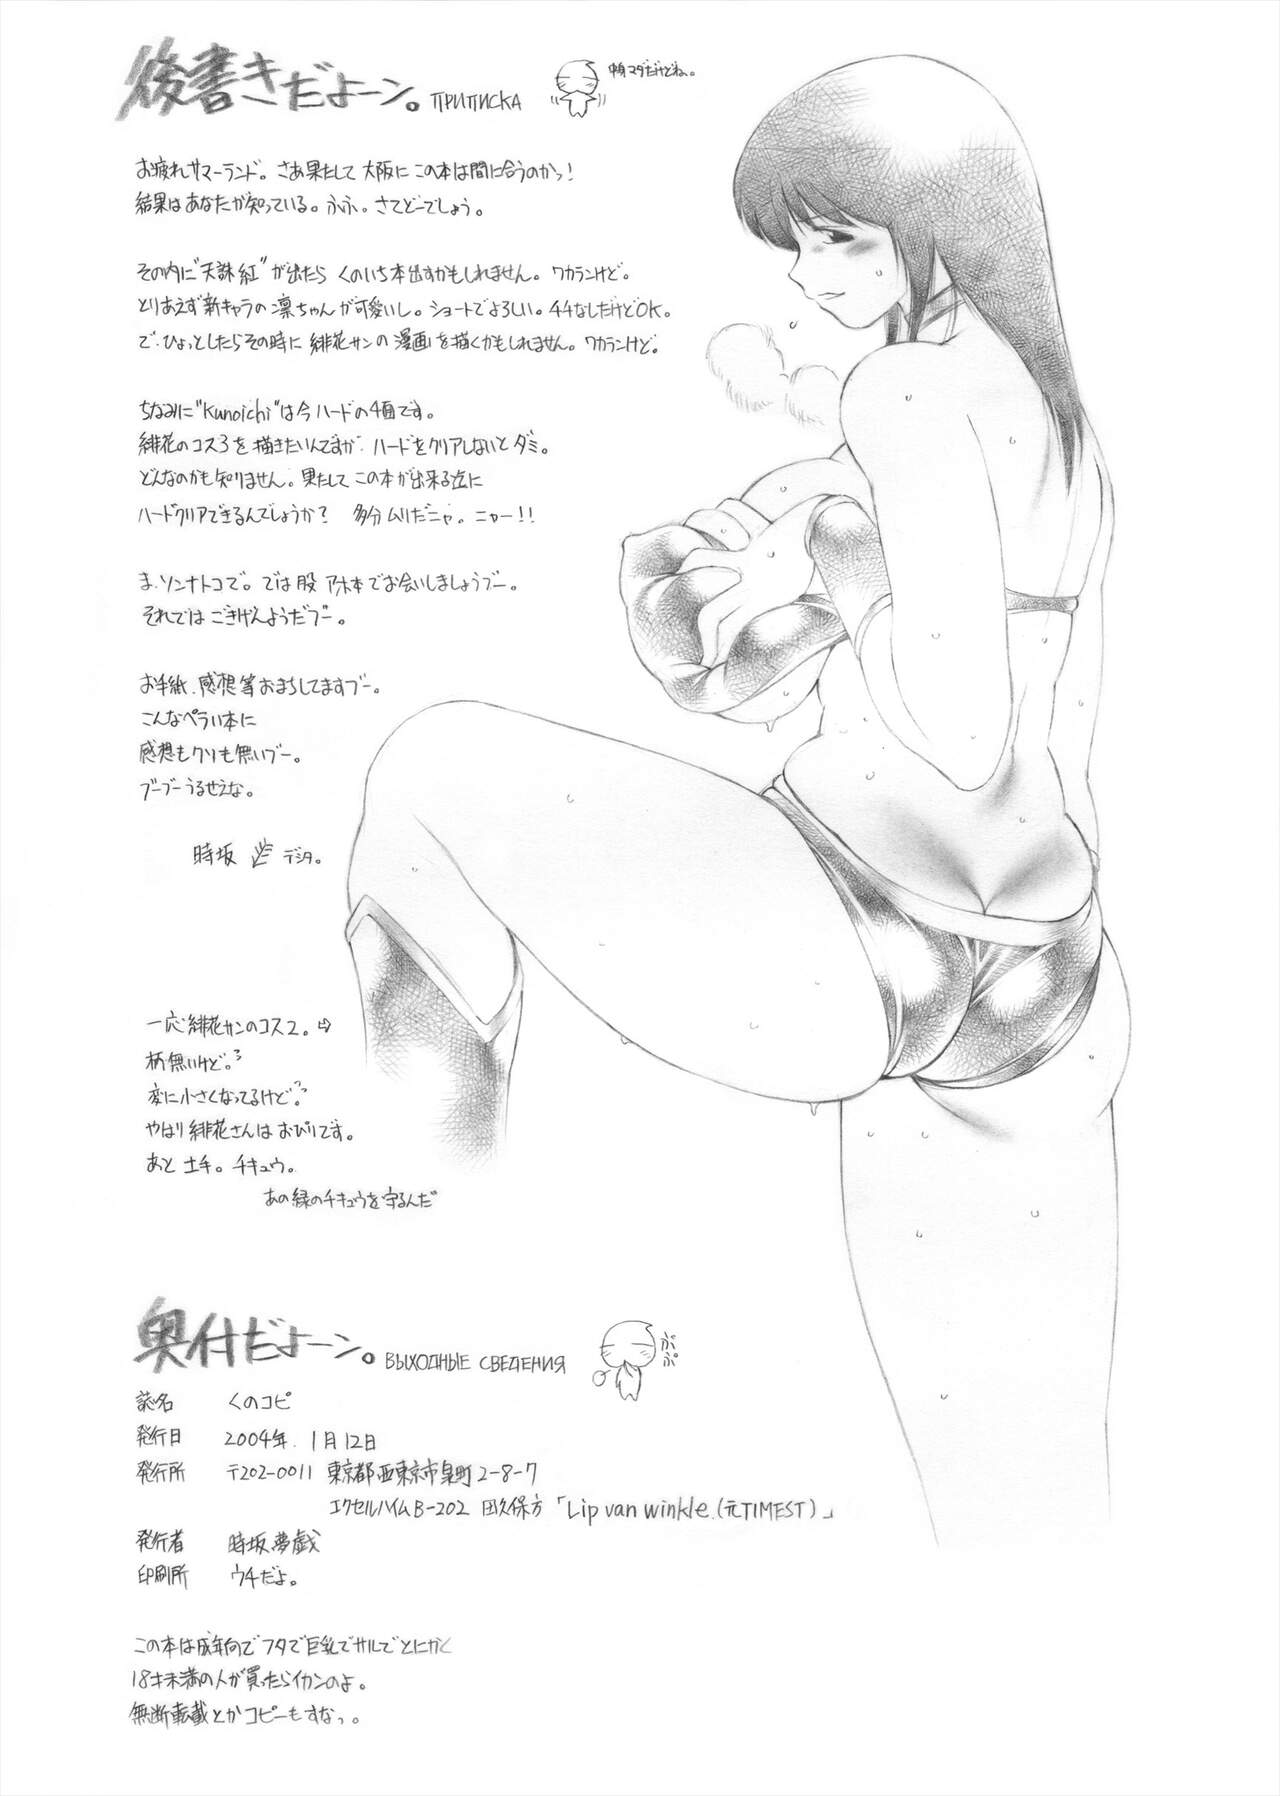 後書きだよーン。 ПРИПИСКА
中身マダだけどね。
お疲れサマーランド。さあ果たして 大阪に この本は間に合うのかっ！
結果はあなたが知っている。ふふ。さてどーでしょう。
その内に“天誅 紅”が出たら くのいち本出すかもしれません。ワカランけど。
とりあえず新キャラの凛ちゃんが可愛いし。ショートでよろしい。チチなしだけどOK。
で、ひょっとしたらその時に 緋花サンの漫画を描くかもしれません。ワカランけど。
ちなみに“Kunoichi”は今ハードの4面です。
緋花のコス3を描きたいんですが、ハードをクリアしないとダミ。
どんなのかも知りません。果たして この本が出来る迄に
ハードクリアできるんでしょうか？ 多分ムリだニャ。ニャー！！
ま、ソンナトコで。では股 アホ本でお会いしましょうブー。
それでは ごきげんようだブー。
お手紙、感想等おまちしてますブー。
こんなペラい本に
感想もクソも無いブー。
ブーブーうるせえな。
時坂 デシタ。
一応緋花サンのコス2。⇨
柄無いけど。
変に小さくなってるけど。
やはり緋花さんは おびりです。
あと 土手。チキュウ。
あの緑のチキュウを守るんだ
奥付だよーン。 ВЫХОДНЫЕ СВЕДЕНИЯ
ぷぷ
誌名 くのコピ
発行日 2004年 1月12日
発行所 〒202-0011 東京都西東京市泉町2-8-7
エクセルハイムB-202 田久保方 「Lip van winkle.(元TIMEST)」
発行者 時坂夢戯
印刷所 ウチだよ。
この本は成年向でフタで巨乳でサルでとにかく
18才未満の人が買ったらイカンのよ。
無断転載とかコピーもすなっ。